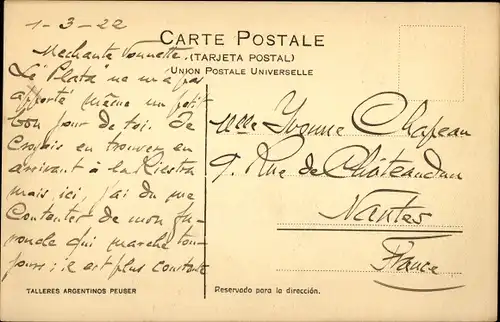 1-3-22
CARTE POSTALE
(TARJETA POSTAL)
UNION POSTALE UNIVERSELLE
Mechante Vonnette.
Le Plata ne m'a pas
apporté même un petit
bon jour de toi. Je
Croyais en trouver en
arrivant à la Riestra
mais ici, j'ai du me
Contenter de mon
qui marche tou-
jours; il est plus constante
Mlle Yvonne Chapeau
9. Rue de Châteaudun
Nantes
France
TALLERES ARGENTINOS PEUSER
Reservado para la dirección.